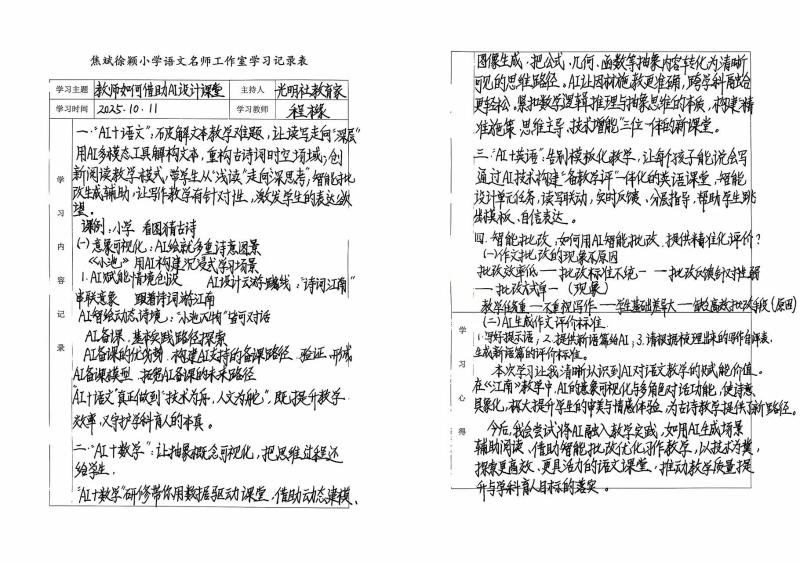 焦斌徐颖小学语文名师工作室学习记录表
学习主题 教师如何借助AI设计课堂 主持人 光明社教育家
学习时间 2025.10.11 学习教师
学习内容记录
一.“AI+语文”:不皮解文本教学难题,让读写走向“深层”
用AI多模态工具解构文本,重构古诗词时空场域,创
新阅读教学模式,带学生从“浅读”走向深思考,智能批
改生成辅助,让写作教学有针对性,激发学生的表达欲
望。
课例:小学 看图猜古诗
(一)意象可视化:AI绘就多重诗意图景
《小池》用AI构建沉浸式学习场景
1.AI赋能情境创设 AI设计云游路线:“诗词江南”
串联意象 跟着诗词游江南
AI智绘动态诗境:“小池”万物“皆可对话
AI备课.基本实践路径探索
AI备课的优劣势 构建AI支持的备课路径 验证.形成
AI备课模型 拓宽AI备课的未来路径
“AI+语文”真正做到“技术为舟,人文为舵”,既提升教学
效率,又守护学科育人的本真。
二.“AI+数学”:让抽象概念可视化,把思维过程还
给学生.
“AI+数学”研修带你用数据驱动课堂.借助动态建模、
图像生成.把公式.几何.函数等抽象内容转化为清晰
可见的思维路径。AI让因材施教更准确,跨学科融合
更轻松,紧扣数学逻辑推理与抽象思维的本质,构建“精
准施策 思维主导.技术智能”三位一体的新课堂。
三.“AI+英语”:告别模板化教学,让每个孩子能说会写
通过AI技术构建“备教学评”一体化的英语课堂,智能
设计单元任务.读写联动,实时反馈、分层指导,帮助学生跳
出模板、自信表达。
四.智能批改:如何用AI智能批改.提供精准化评价?
(一)作文批改的现象不原因
批改效率低——批改标准不统一——批改反馈针对性弱
——批改方式单一(现象)
教学任务重——不重视写作——学生基础差异大——缺乏高效批改手段(原因)
(二)AI生成作文评价标准.
1.写好提示语;2.提供新语篇给AI;3.请根据梳理出来的写作自评表,
生成新语篇的评价标准。
学习心得
本次学习让我清晰认识到AI对语文教学的赋能价值。
在《江南》教学中,AI的意象可视化与多角色对话功能,使诗意
具象化,极大提升学生的审美与情感体验,为古诗教学提供了新路径。
今后,我会尝试将AI融入教学实践,如用AI生成场景
辅助阅读、借助智能批改优化习作教学,以技术为翼,
探索更高效、更具活力的语文课堂,推动教学质量提
升与学科育人目标的落实。